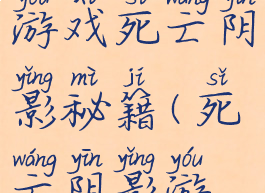 yóu xì sǐ wáng yīn
游戏死亡阴
yǐng mì jí sǐ
影秘籍(死
wáng yīn yǐng yóu
亡阴影游